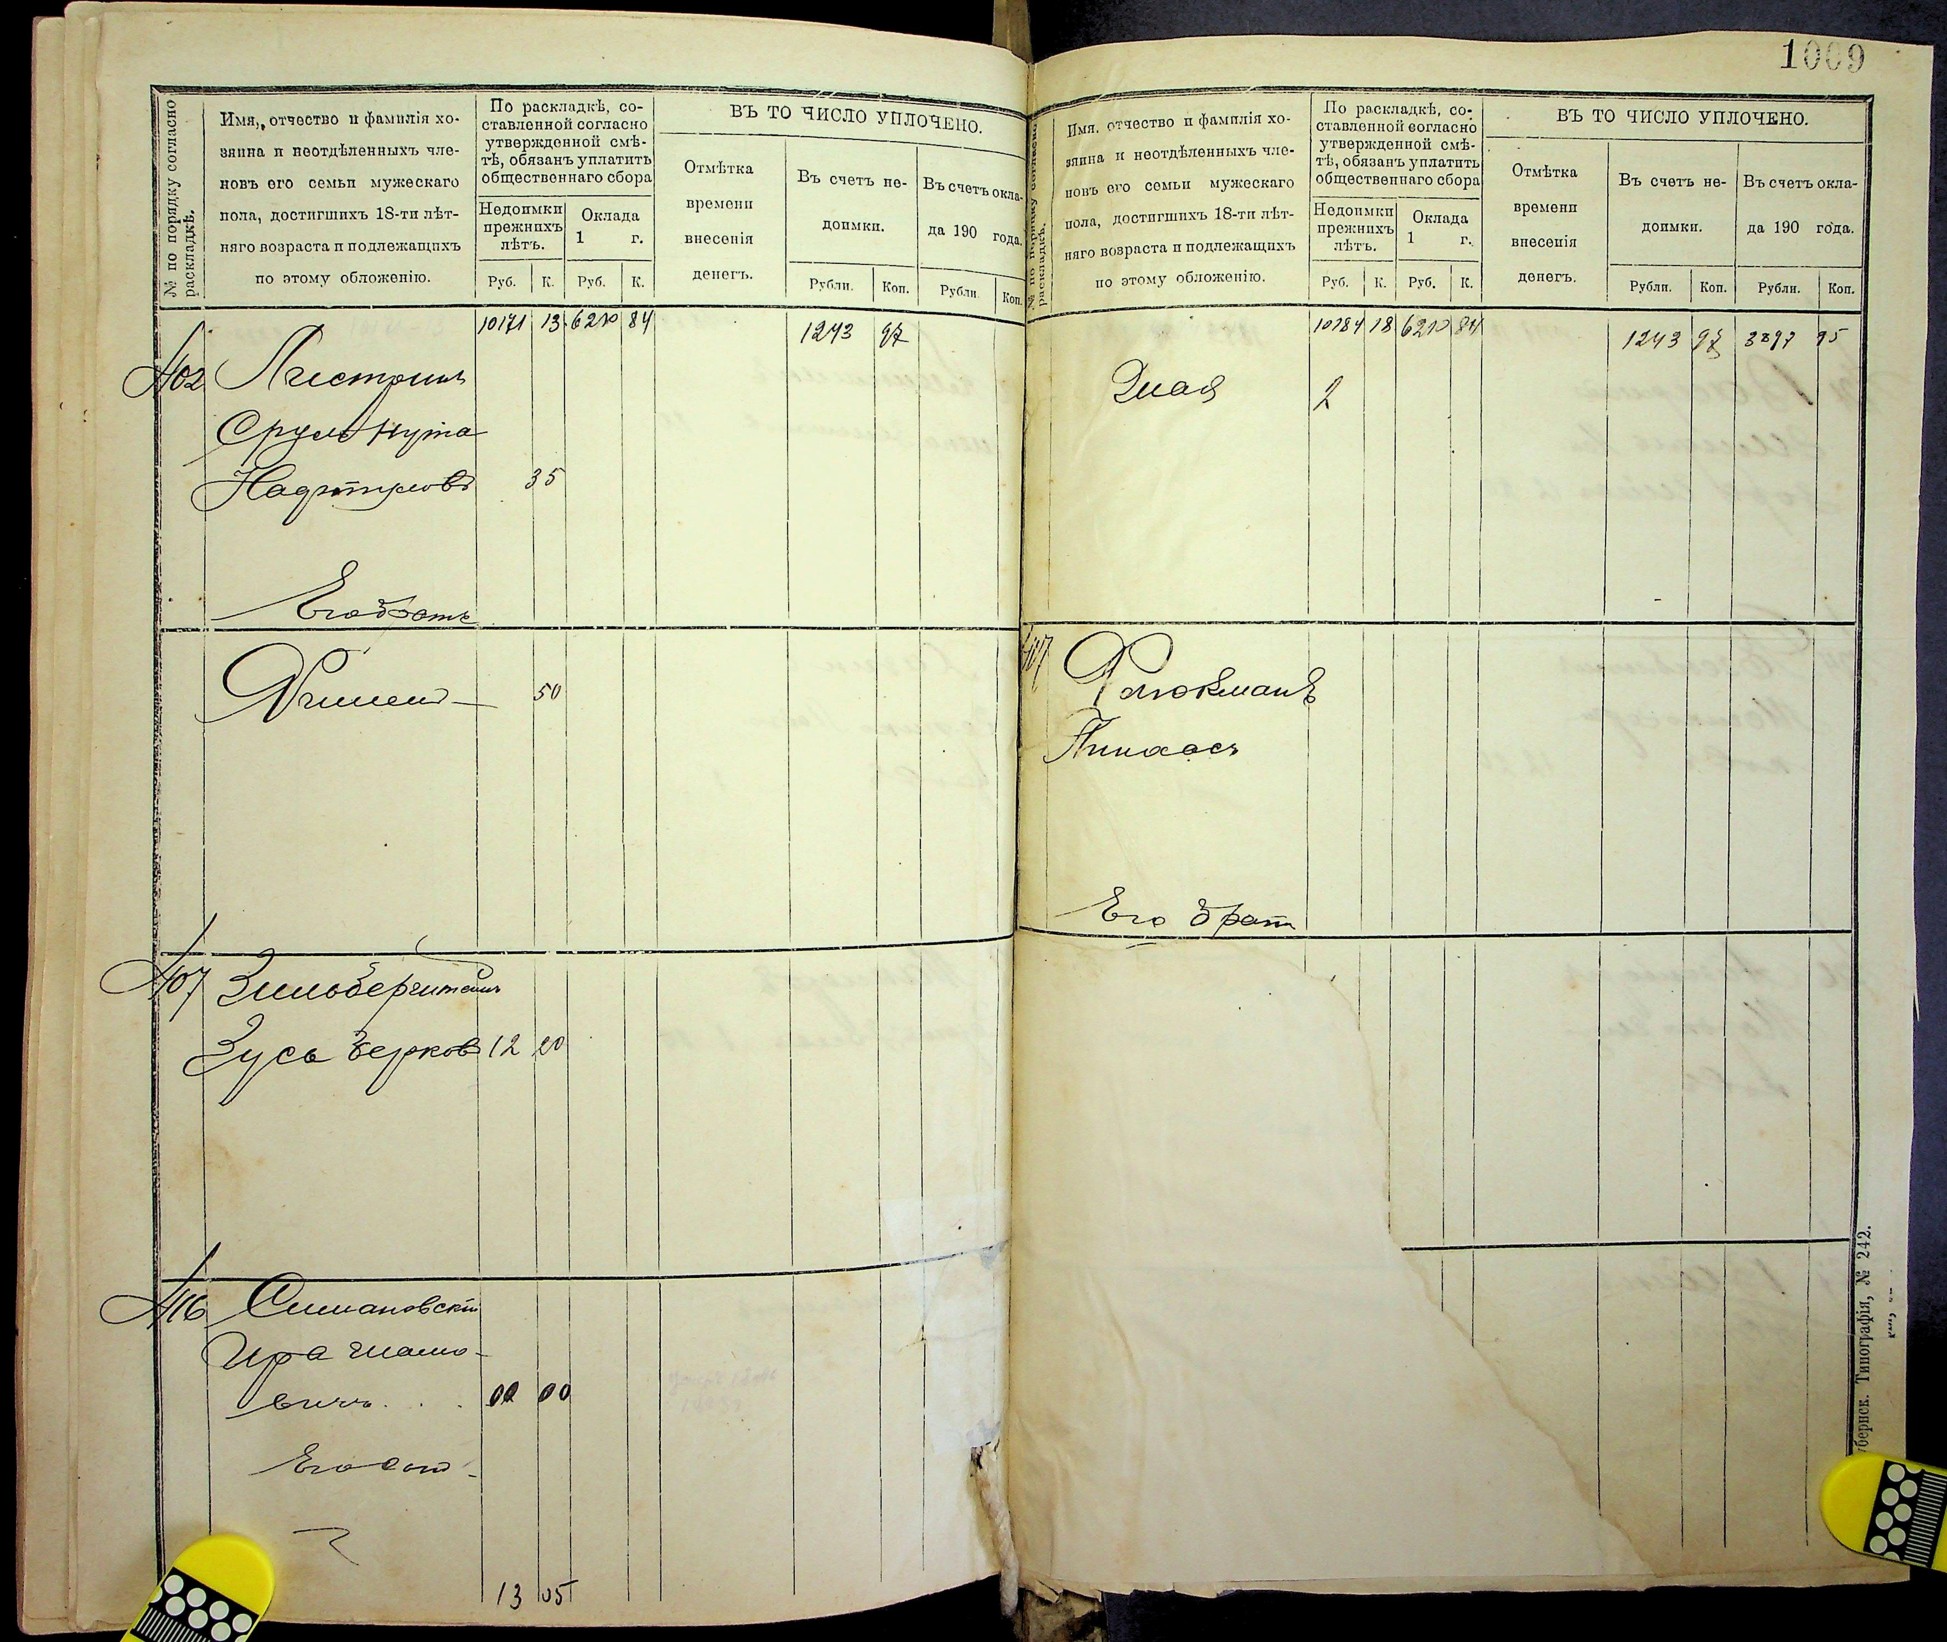 1009
№ по порядку согласно раскладкѣ.
Имя, отчество и фамилія хо-
зяина и неотдѣленныхъ чле-
новъ его семьи мужескаго
пола, достигшихъ 18-ти лѣт-
няго возраста и подлежащихъ
по этому обложенію.
По раскладкѣ, со-
ставленной согласно
утвержденной смѣ-
тѣ, обязанъ уплатить
общественнаго сбора
Недоимки
прежнихъ
лѣтъ.
Оклада
1 г.
Руб. К. Руб. К.
ВЪ ТО ЧИСЛО УПЛОЧЕНО.
Отмѣтка
времени
внесенія
денегъ.
Въ счетъ не-
доимки.
Въ счетъ окла-
да 190 года.
Рубли. Коп. Рубли Коп.
10171 13 6210 84 1243 97
402
Сруль Нута
35
Его братъ
50
407 Зильберштейнъ
Зусь Берковъ 12 20
416 Симановскій
вичъ . . . 00 00
13 05
№ по порядку согласно раскладкѣ.
Имя, отчество и фамилія хо-
зяина и неотдѣленныхъ чле-
новъ его семьи мужескаго
пола, достигшихъ 18-ти лѣт-
няго возраста и подлежащихъ
по этому обложенію.
По раскладкѣ, со-
ставленной согласно
утвержденной смѣ-
тѣ, обязанъ уплатить
общественнаго сбора
Недоимки
прежнихъ
лѣтъ.
Оклада
1 г.
Руб. К. Руб. К.
ВЪ ТО ЧИСЛО УПЛОЧЕНО.
Отмѣтка
времени
внесенія
денегъ.
Въ счетъ не-
доимки.
Въ счетъ окла-
да 190 года.
Рубли. Коп. Рубли. Коп.
10184 18 6210 84 1243 97 3897 95
2
Пинхасъ
Его брат
Типографія, № 242.